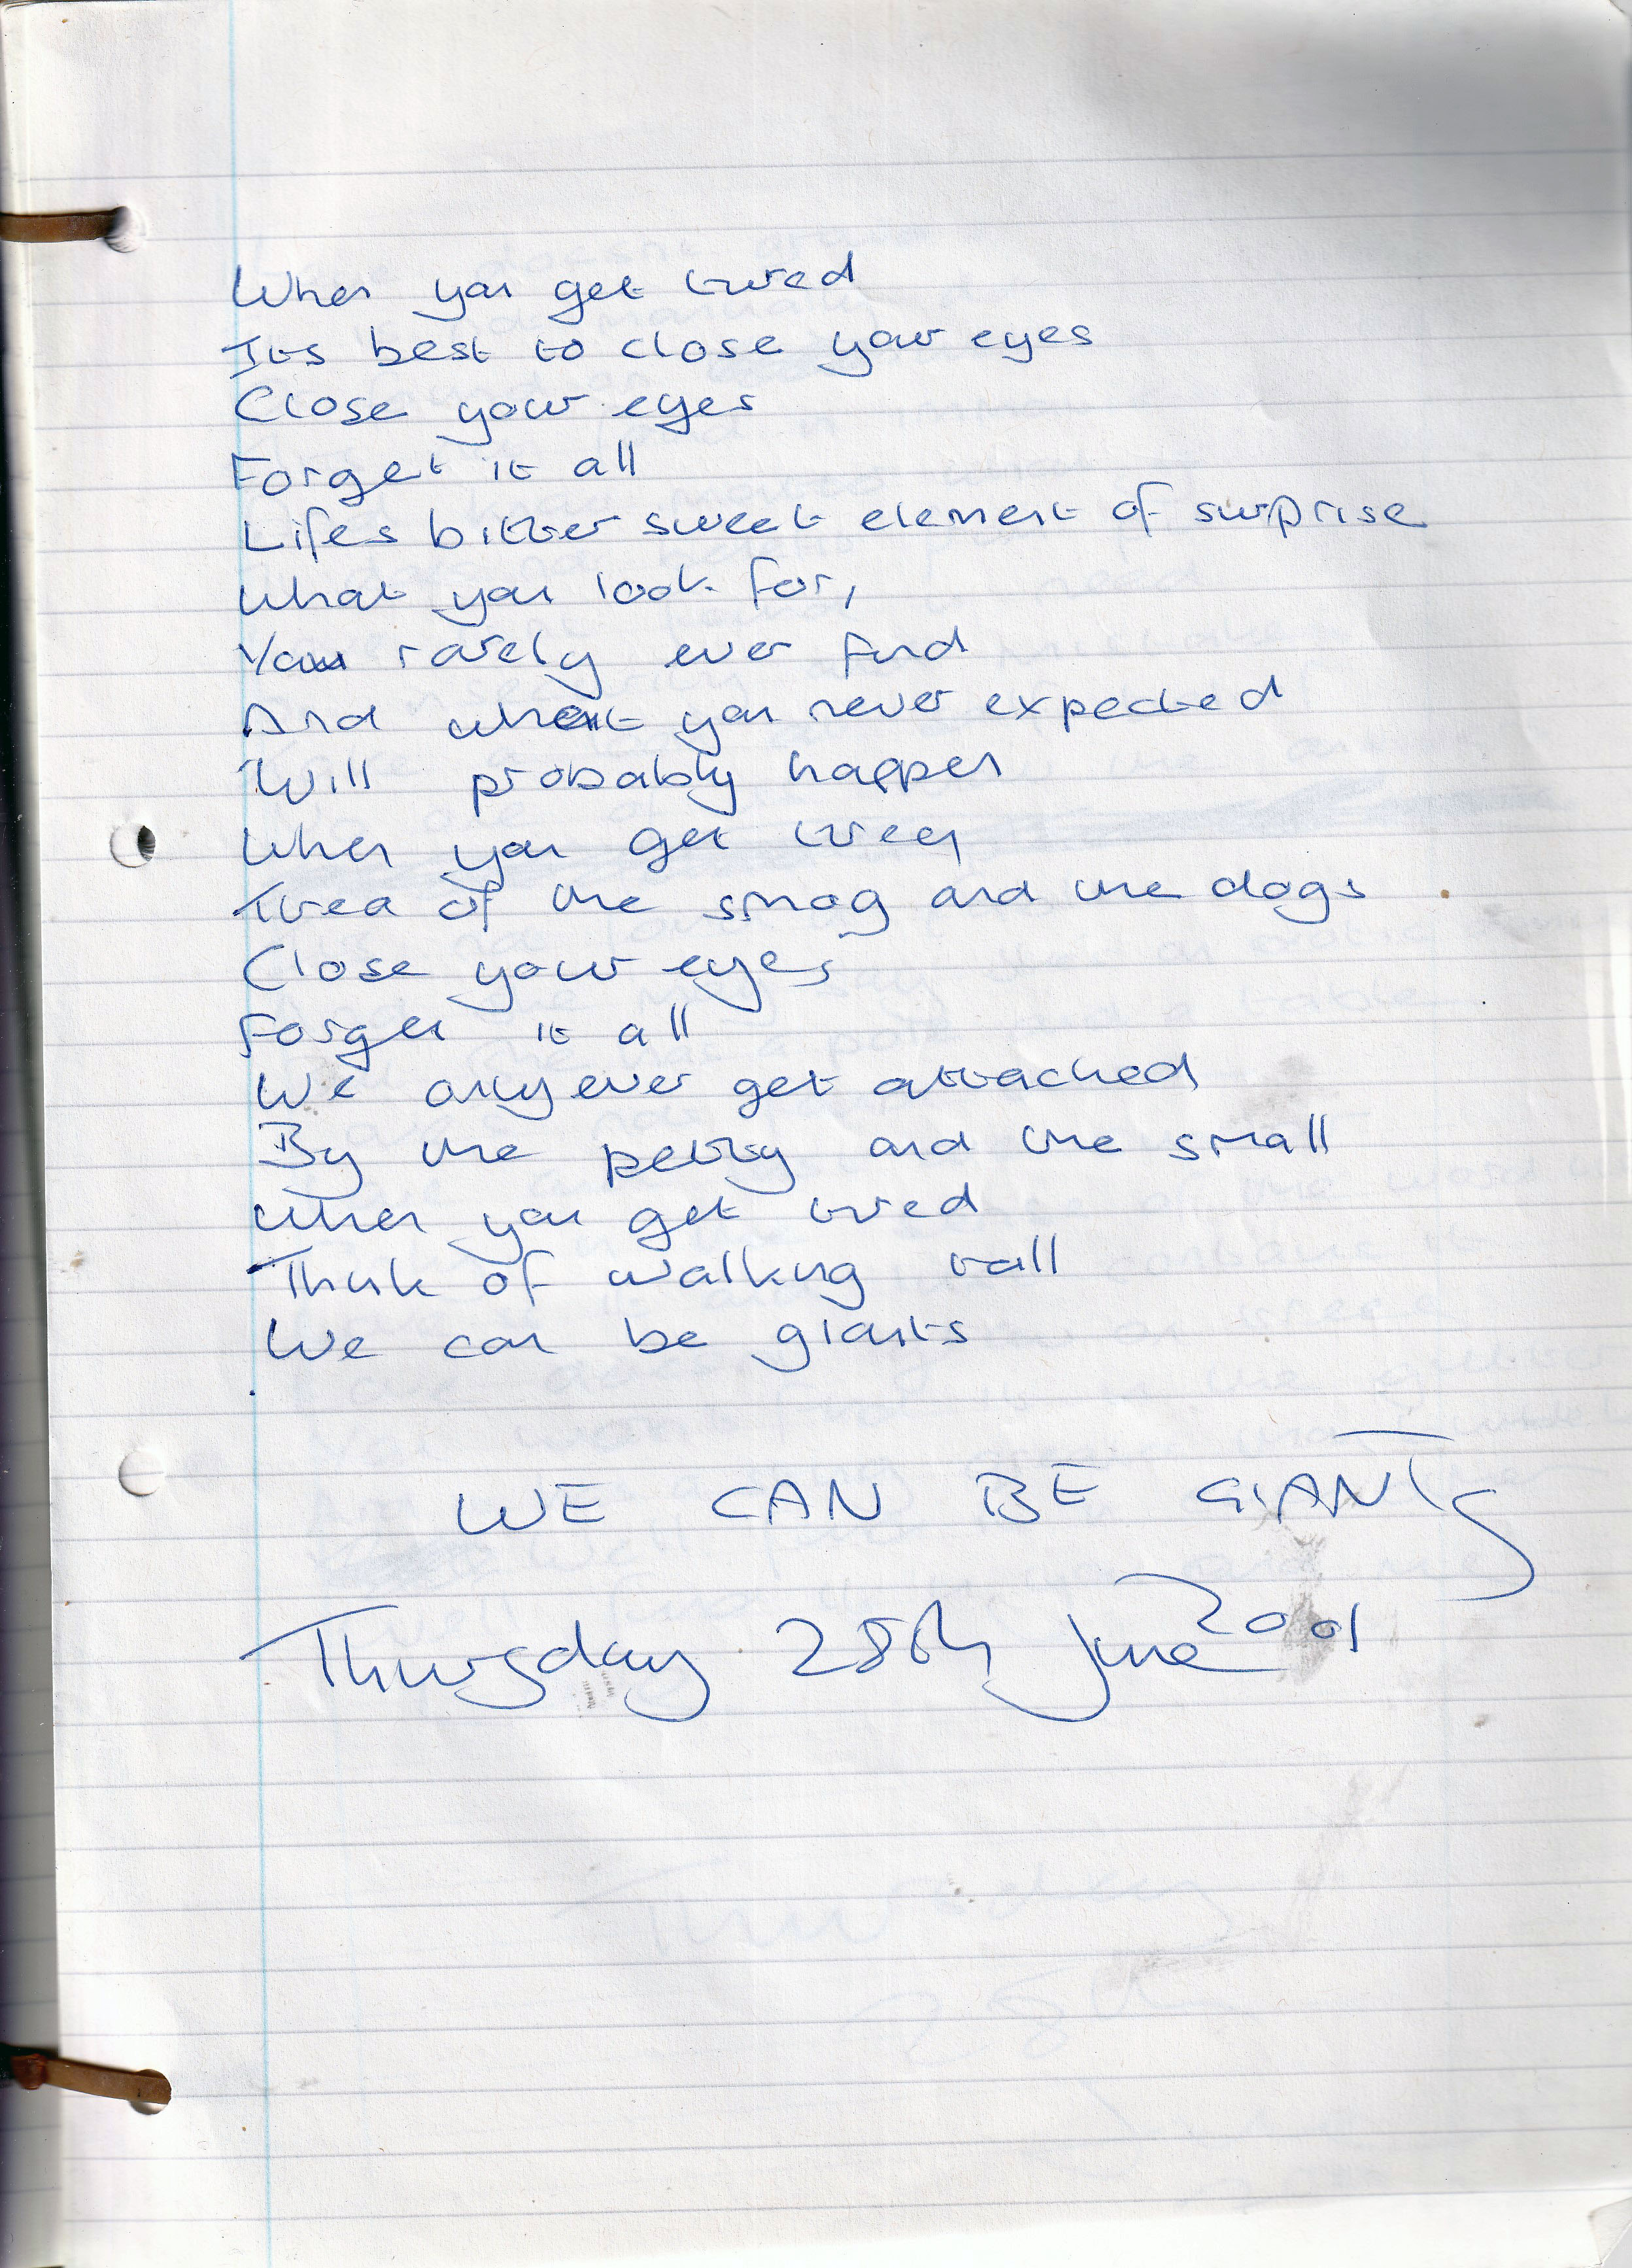 When you get tired
Its best to close your eyes
Close your eyes
Forget it all
Lifes bitter sweet element of surprise
What you look for,
You rarely ever find
And what you never expected
Will probably happen
When you get
Tired of the smog and the dogs
Close your eyes
Forget it all
We only ever get attached
By the petty and the small
When you get tired
Think of walking tall
We can be giants
WE CAN BE GIANTS
Thursday 28th June 2001